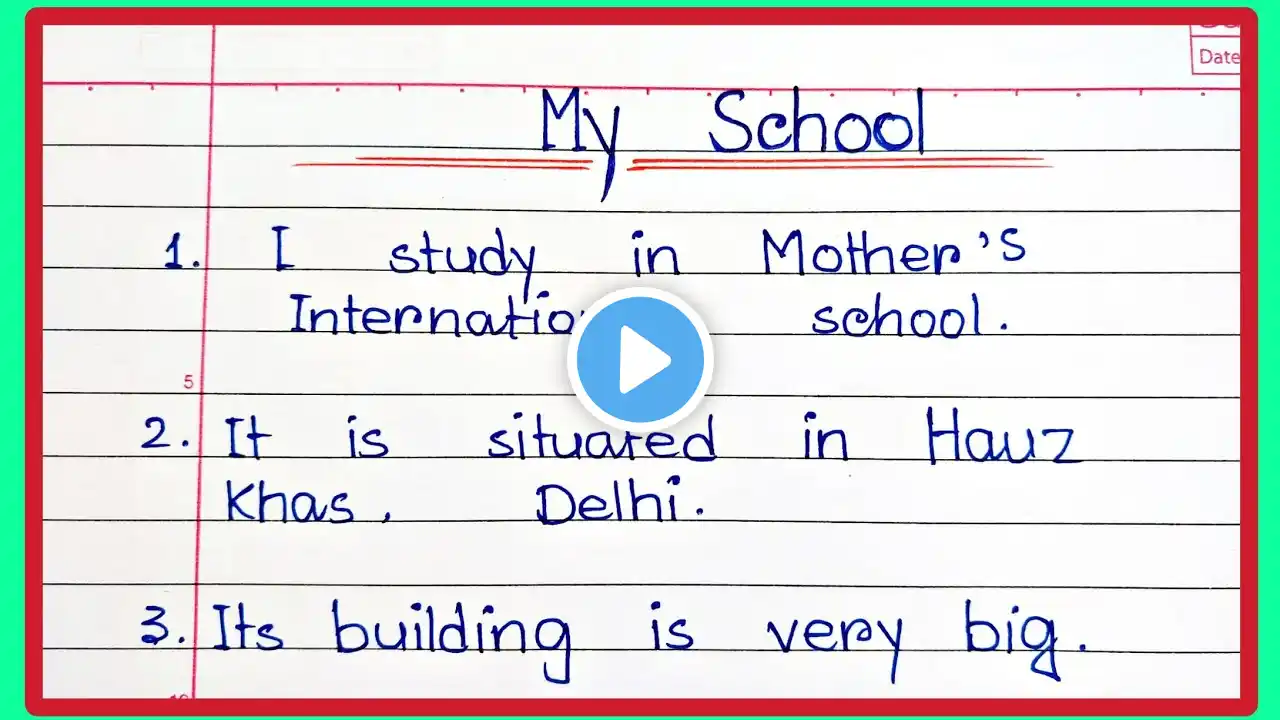 Date
My School
1. I study in Mother's
school.
5
2. It is situated in Hauz
Khas, Delhi.
3. Its building is very big.